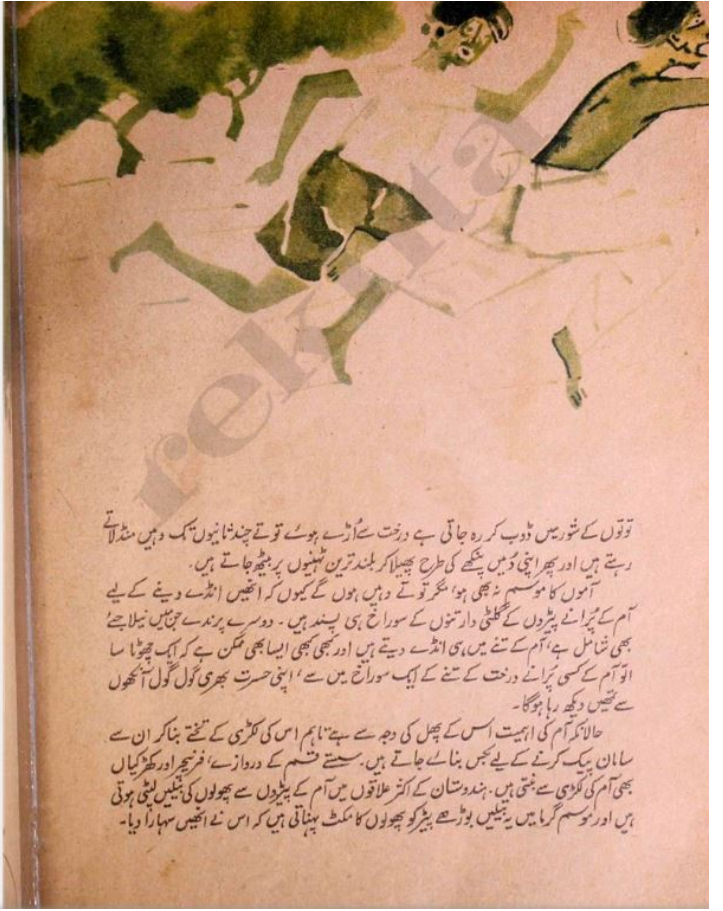 rekhta
توتوں کے شور میں ڈوب کر رہ جاتی ہے درخت سے اُڑے ہوئے توتے چند ثانیوں تک وہیں منڈلاتے
رہتے ہیں اور پھر اپنی دُمیں پنکھے کی طرح پھیلا کر بلند ترین ٹہنیوں پر بیٹھ جاتے ہیں۔
آموں کا موسم نہ بھی ہو، مگر توتے وہیں ہوں گے کیوں کہ انھیں انڈے دینے کے لیے
آم کے پُرانے پیڑوں کے گلٹی دار تنوں کے سوراخ ہی پسند ہیں۔ دوسرے پرندے جن میں نیلا
بھی شامل ہے، آم کے تنے میں ہی انڈے دیتے ہیں اور کبھی کبھی ایسا بھی ممکن ہے کہ ایک چھوٹا سا
الّو آم کے کسی پُرانے درخت کے تنے کے ایک سوراخ میں سے، اپنی حسرت بھری گول گول آنکھوں
سے تمھیں دیکھ رہا ہوگا۔
حالانکہ آم کی اہمیت اس کے پھل کی وجہ سے ہے تاہم اس کی لکڑی کے تختے بنا کر ان سے
سامان پیک کرنے کے لیے بکس بنائے جاتے ہیں۔ سستے قسم کے دروازے، فرنیچر اور کھڑکیاں
بھی آم کی لکڑی سے بنتی ہیں۔ ہندوستان کے اکثر علاقوں میں آم کے پیڑوں سے پھولوں کی بیلیں لپٹی ہوتی
ہیں اور موسم گرما میں یہ بیلیں بوڑھے پیڑ کو پھولوں کا مکٹ پہناتی ہیں کہ اس نے انھیں سہارا دیا۔